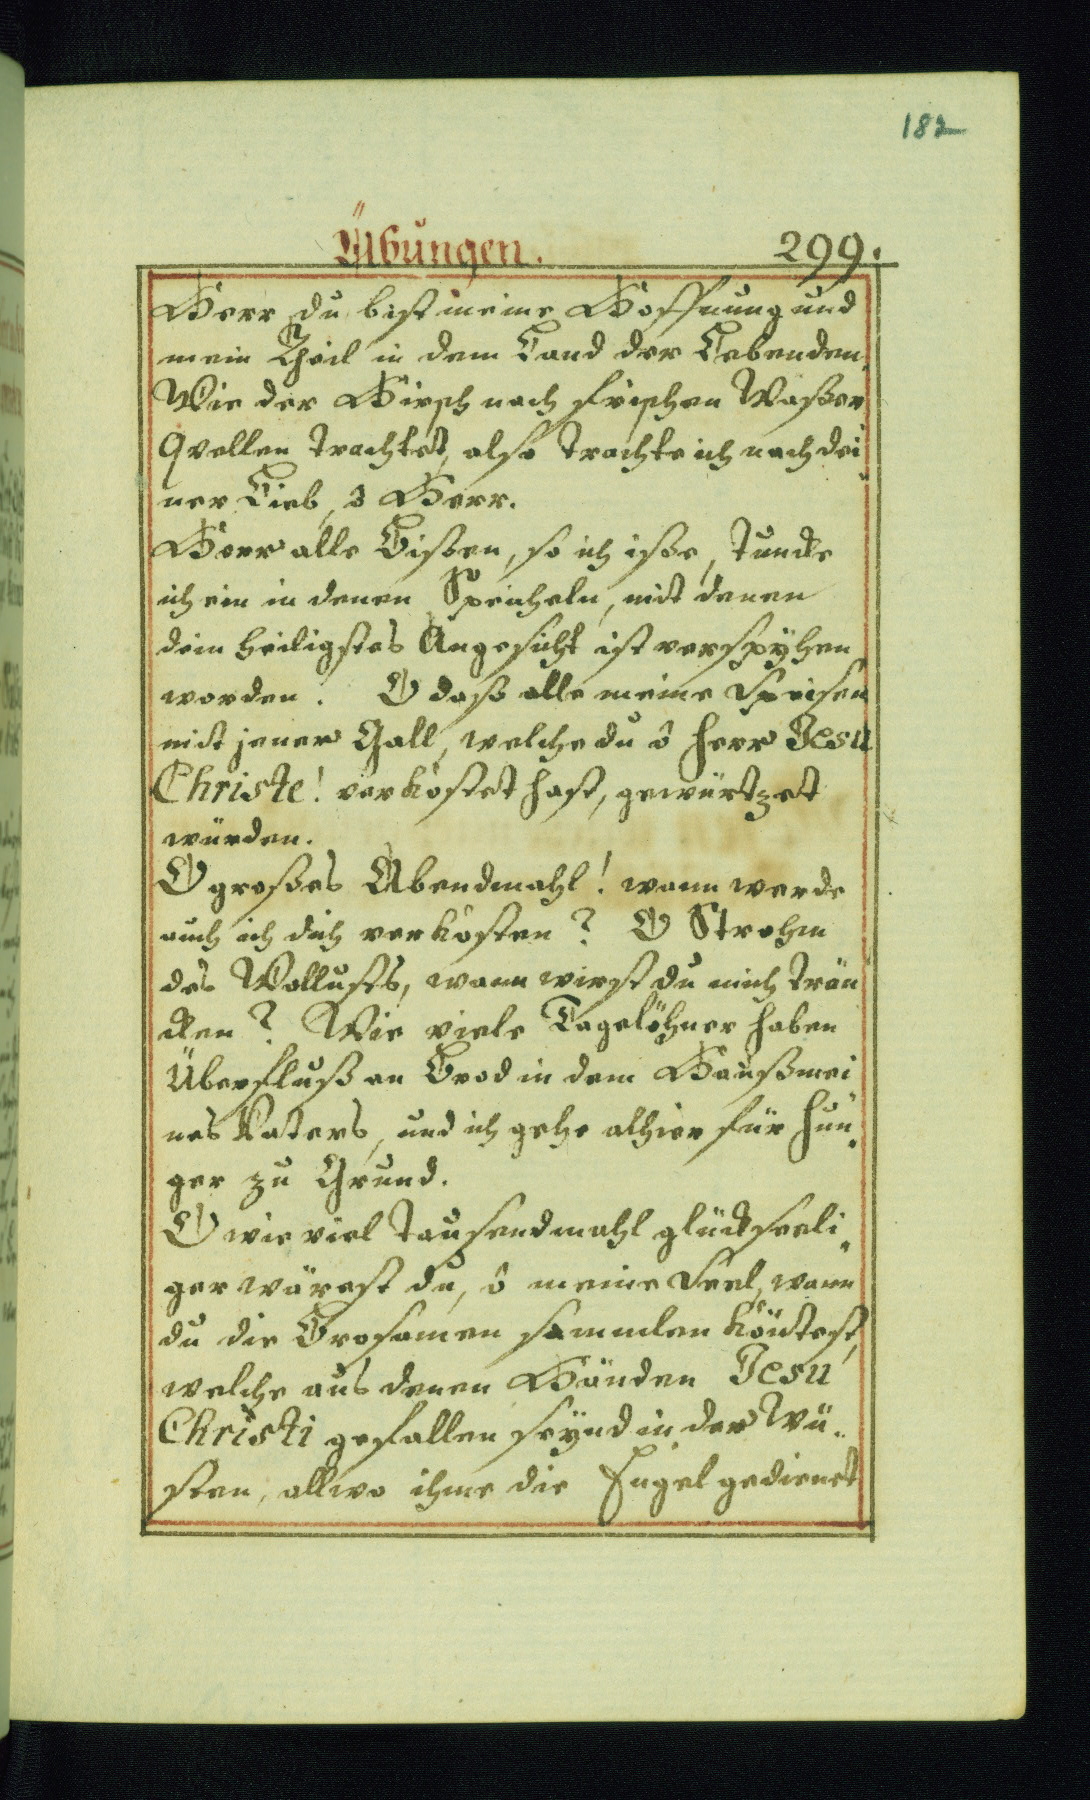 182
Übungen. 299.
Herr du bist meine Hoffnung und
mein Theil in dem Land der Lebenden.
Wie der Hirsch nach frischen Waßer
Qvellen trachtet, also trachte ich nach dei
ner Lieb, ô Herr.
Herr alle Bißen, so ich iße, tuncke
ich ein in denen Speicheln, mit denen
dein heiligstes Angesicht ist verspyhen
worden. O daß alle meine Speisen
mit jener Gall, welche du ô Herr Jesu
Christe! verkostet hast, gewürtzet
würden.
O großes Abendmahl! wann werde
auch ich dich verkosten? O Strohm
des Wollusts, wann wirst du mich trän
cken? Wie viele Tagelöhner haben
Überfluß an Brod in dem Hauß mei
nes Vaters, und ich gehe alhier für Hun¬
ger zu Grund.
O wie viel tausendmahl glückseeli¬
ger wärest du, ô meine Seel, wann
du die Brosamen sammlen köntest,
welche aus denen Händen Jesu
Christi gefallen seynd in der Wü¬
sten, allwo ihme die Engel gedienet